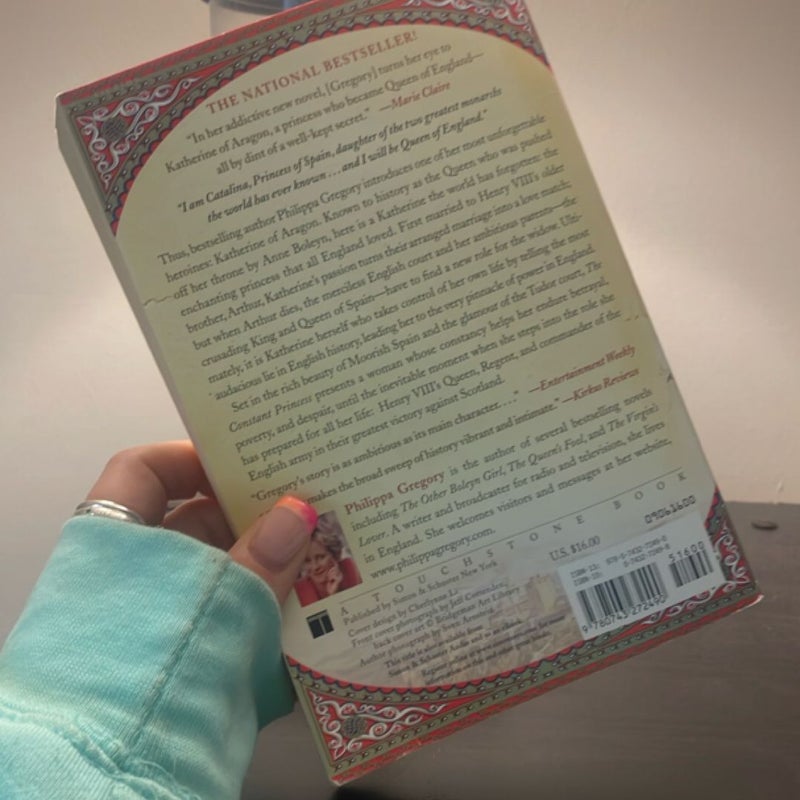 THE NATIONAL BESTSELLER!
"In her addictive new novel, [Gregory] turns her eye to
Katherine of Aragon, a princess who became Queen of England—
all by dint of a well-kept secret." —Marie Claire
"I am Catalina, Princess of Spain, daughter of the two greatest monarchs
the world has ever known . . . and I will be Queen of England."
Thus, bestselling author Philippa Gregory introduces one of her most unforgettable
heroines: Katherine of Aragon. Known to history as the Queen who was pushed
off her throne by Anne Boleyn, here is a Katherine the world has forgotten: the
enchanting princess that all England loved. First married to Henry VIII's older
brother, Arthur, Katherine's passion turns their arranged marriage into a love match;
but when Arthur dies, the merciless English court and her ambitious parents—the
crusading King and Queen of Spain—have to find a new role for the widow. Ulti-
mately, it is Katherine herself who takes control of her own life by telling the most
audacious lie in English history, leading her to the very pinnacle of power in England.
Set in the rich beauty of Moorish Spain and the glamour of the Tudor court, The
Constant Princess presents a woman whose constancy helps her endure betrayal,
poverty, and despair, until the inevitable moment when she steps into the role she
has prepared for all her life: Henry VIII's Queen, Regent, and commander of the
English army in their greatest victory against Scotland.
"Gregory's story is as ambitious as its main character. . . ." —Entertainment Weekly
makes the broad sweep of history vibrant and intimate." —Kirkus Reviews
Philippa Gregory is the author of several bestselling novels
including The Other Boleyn Girl, The Queen's Fool, and The Virgin's
Lover. A writer and broadcaster for radio and television, she lives
in England. She welcomes visitors and messages at her website,
www.philippagregory.com.
A TOUCHSTONE BOOK
Published by Simon & Schuster New York
Cover design by Cherlynne Li
Front cover photograph by Jeff
back cover art © Bridgeman Art Library
Author photograph by
This title is also available from
Simon & Schuster Audio
U.S. $16.00
09061600
ISBN-13: 978-0-7432-7249-0
ISBN-10: 0-7432-7249-8
51600
9 780743 272490